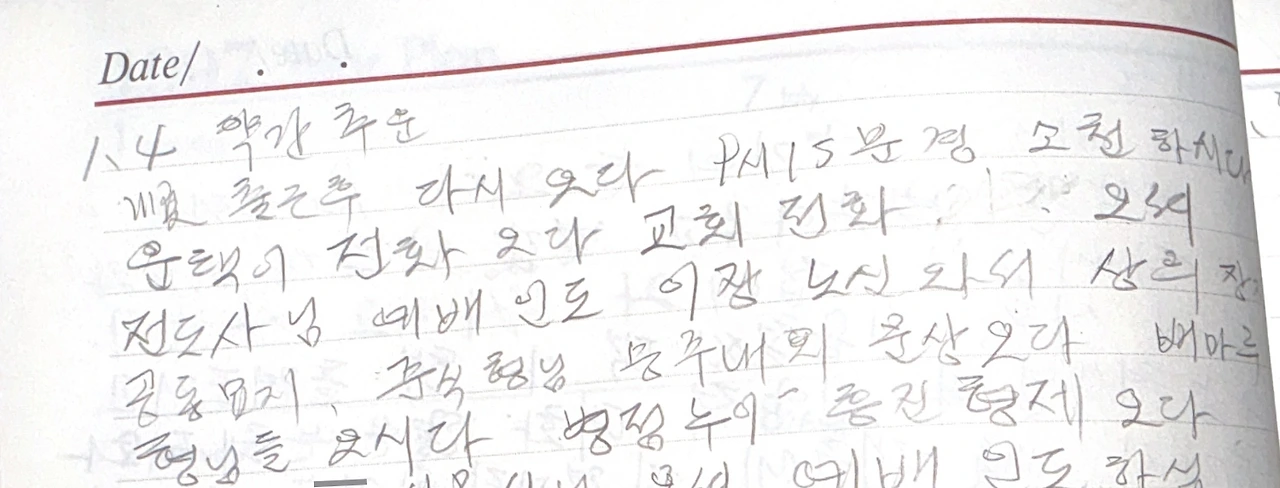 Date/ . .
1、4 약간 추운
출근후 다시 오다 PM15분경 소천 하시다
운택이 전화 오다 교회 전화 오셔
전도사님 예배 인도 이장 노신 와서 상의
공동묘지、 형님 문상 오다
형님들 오시다 병점 누이 흥진 형제 오다
예배 인도 하심